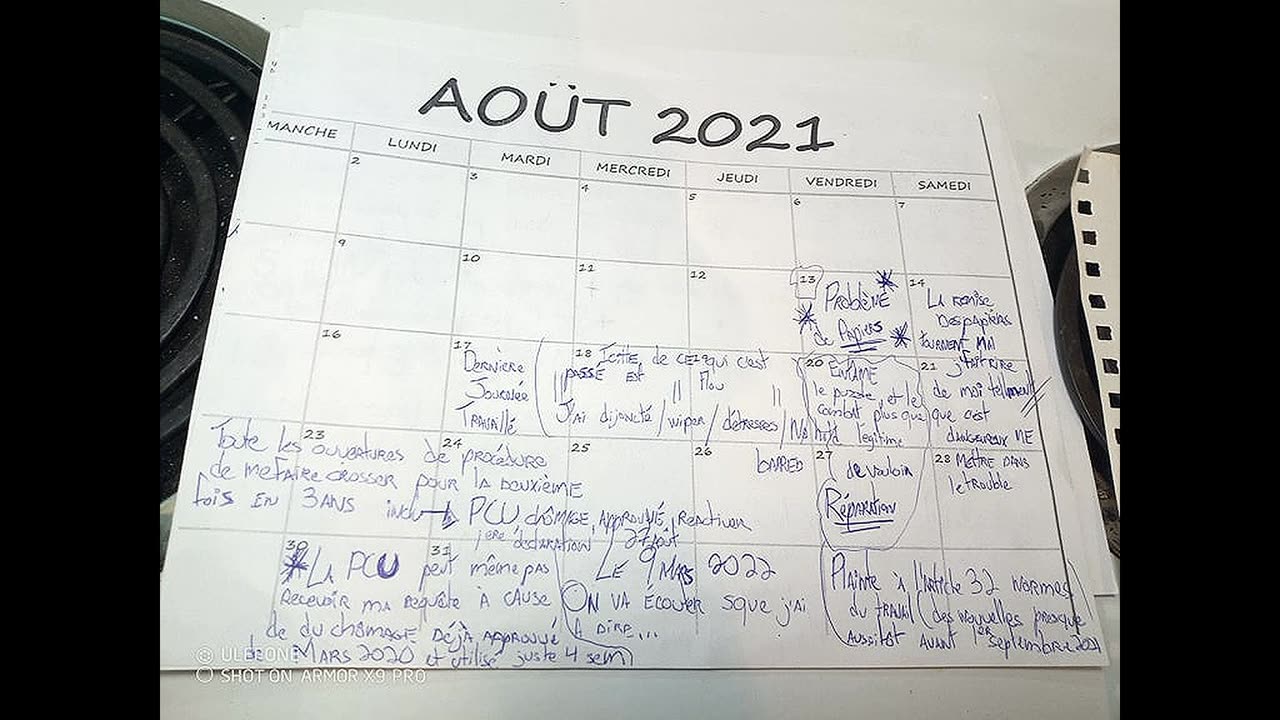 AOÜT 2021
MANCHE LUNDI MARDI MERCREDI JEUDI VENDREDI SAMEDI
2 3 4 5 6 7
9 10 11 12 13 14
Problème de Papiers
La remise des papiers tournent mal
16 17 18 20 21
Dernière Journée Travaillé
Icitte de ce 19 qui c'est
passé est " Flou "
J'ai disjoncté / wiper / détresses / No hold barred
Entame
le puzzle, et le
combat plus que
légitime
de vouloir
Réparation
j'fait rire
de moi tellement
que c'est
dangereux me
Mettre dans
le trouble
23 24 25 26 27 28
Toute les ouvertures de procédure
de me faire crosser pour la deuxième
fois en 3 ans inclu → PCU, chômage, approuvé, réactiver
1ère déclaration 27 août
30 31
* La PCU peut même pas
recevoir ma requête à cause
de du chômage déjà approuvé
de Mars 2020 et utilisé juste 4 sem
Le 9 Mars 2022
On va écouter sque j'ai
à dire...
Plainte à l'article 32 normes
du travail des nouvelles presque
aussitôt avant 1er septembre 2021
ULEFONE
SHOT ON ARMOR X9 PRO